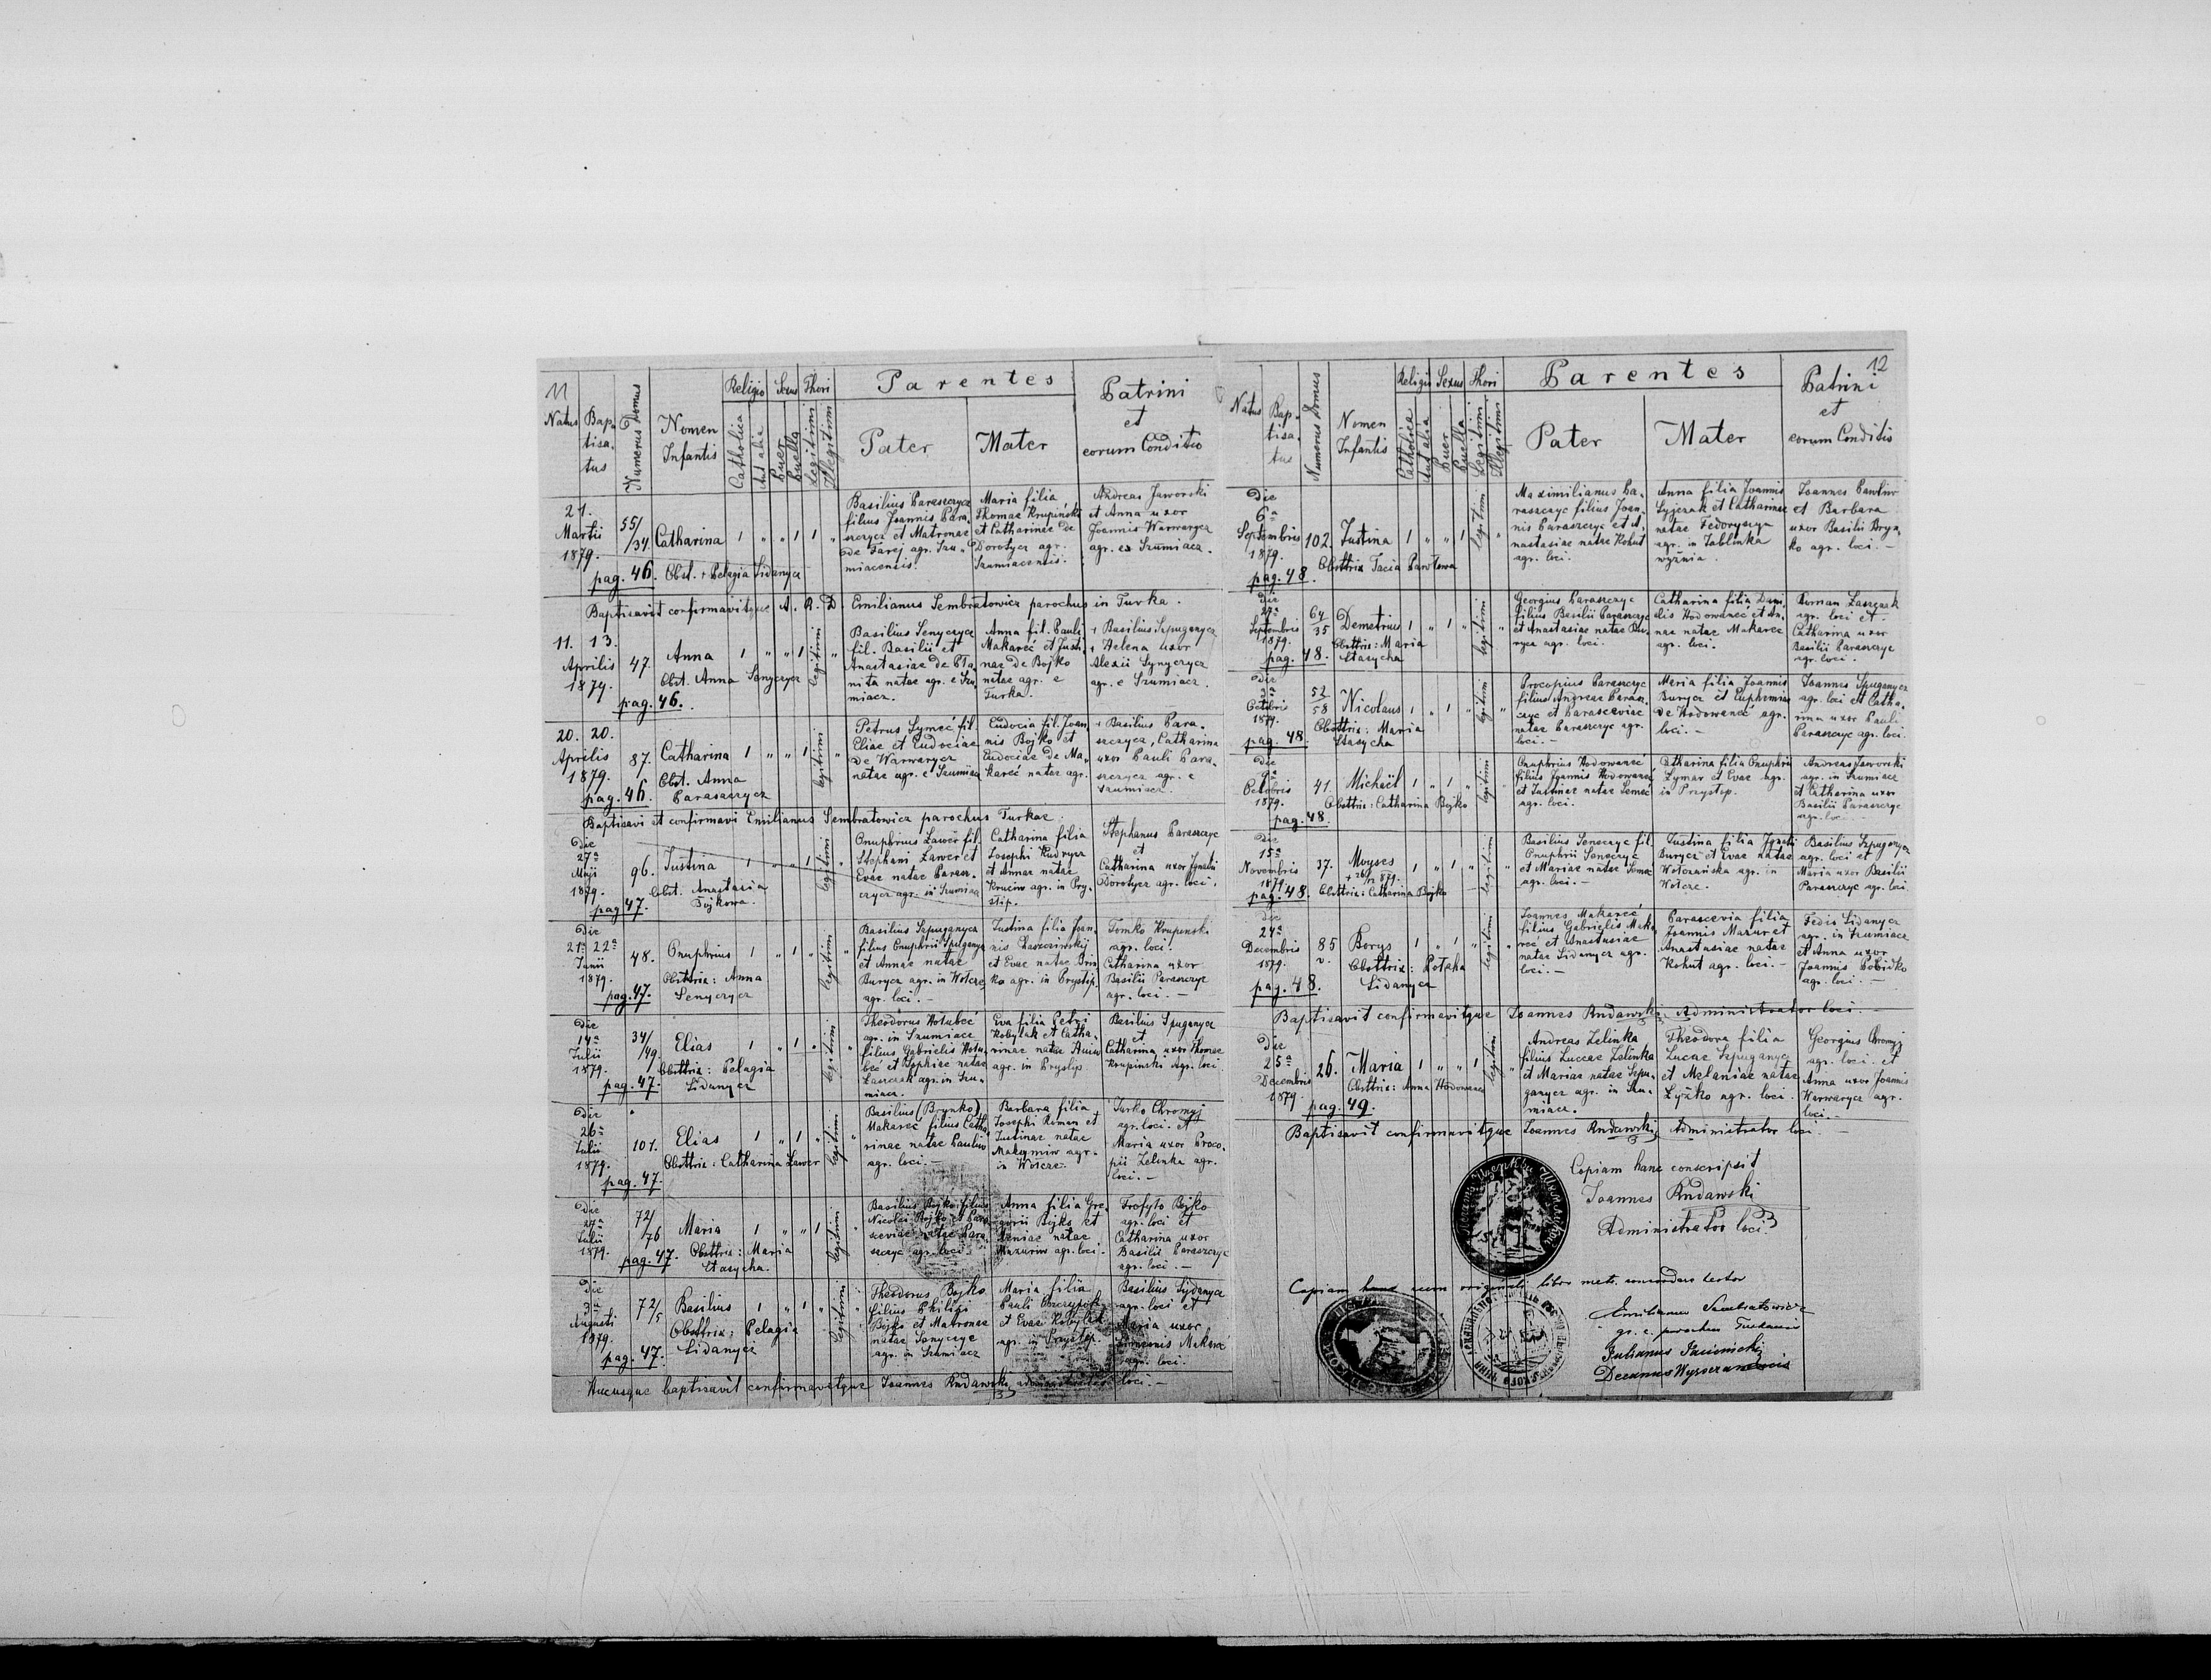 11
Natus
Baptisatus
Numerus Domus
Nomen Infantis
Religio
Catholica
Aut alia
Sexus
Puer
Puella
Thori
Legitimi
Illegitimi
Parentes
Pater
Mater
Patrini
et
eorum Conditio
21.
Martii
1879.
55/34
Catharina 1 " " 1 1 "
pag. 46. Obst. + Pelagia Sidanycz
Basilius Paraszczycz
filius Joannis Para-
szczycz et Matronae
de Farej agr. Szu-
miacensis.
Maria filia
Thomae Krupiński
et Catharinae de
Dorotycz agr.
Szumiacensis.
Andreas Jaworski
et Anna uxor
Joannis Warwarycz
agr. ex Szumiacz.
Baptisavit confirmavitque A. R. D. Emilianus Sembratowicz parochus in Turka.
11. 13.
Aprilis
1879.
47.
Anna 1 " " 1 legitimi
Obst. Anna Senyczycz
pag. 46.
Basilius Senyczycz
fil. Basilii et
Anastasiae de Pla-
nita natae agr. e Szu-
miacz.
Anna fil. Pauli
Makareć et Justi-
nae de Bojko
natae agr. e
Turka.
+ Basilius Szpuganycz
+ Helena uxor
Alexii Synyczycz
agr. e Szumiacz.
20. 20.
Aprilis
1879.
87.
Catharina 1 " " 1 legitimi "
Obst. Anna
Paraszczycz
pag. 46.
Petrus Symeć fil.
Eliae et Eudociae
de Warwarycz
natae agr. e Szumiacz
Eudocia fil. Joan-
nis Bojko et
Eudociae de Ma-
kareć natae agr.
+ Basilius Para-
szczycz, Catharina
uxor Pauli Para-
szczycz agr. e
Szumiacz.
Baptisavi et confirmavi Emilianus Sembratowicz parochus Turkae.
Die
27a
Maji
1879.
96.
Justina 1 " " 1 legitimi "
Obst. Anastasia
Fojkowa.
pag 47.
Onuphrius Ławer fil.
Stephani Ławer et
Evae natae Parasz-
czycz agr. in Szumiacz
Catharina filia
Josephi Kudrycz
et Annae natae
Kruciw agr. in Pry-
stip.
Stephanus Paraszczyc
et
Catharina uxor Ignatii
Dorotycz agr. loci.
Die
21a 22a
Junii
1879.
48.
Onuphrius 1 " 1 " legitimi "
Obstetrix: Anna
Senyczycz
pag. 47.
Basilius Szpuganycz
filius Onuphrii Szpuganycz
et Annae natae
Burycz agr. in Wołcze,
agr. loci. —
Justina filia Joan-
nis
et Evae natae
agr. in Prystip.
Tomko Krupinski
agr. loci.
Catharina uxor
Basilii Paraszczyc
agr. loci. —
Die
14a
Julii
1879.
34/49.
Elias 1 " 1 " legitimi "
Obstetrix: Pelagia
Sidanycz
pag. 47.
Theodorus Hołubeć
agr. in Szumiacz
filius Gabrielis Hołu-
beć et Sophiae natae
Łaszczak agr. in Szu-
miacz.
Eva filia Petri
Kobylak et Catha-
rinae natae
agr. in Prystip.
Basilius Spuganycz
et
Catharina uxor Thomae
Krupinski agr. loci
Die
26a
Julii
1879.
101.
Elias 1 " 1 " legitimi "
Obstetrix: Catharina Ławer
pag. 47.
Basilius (Brynko)
Makareć filius Catha-
rinae natae Pauliw
agr. loci.—
Barbara filia
Josephi Roman et
Justinae natae
Maksymiw agr.
in Wołcze.
Jurko Chromyj
agr. loci. et
Maria uxor Proco-
pii Zelinka agr.
loci.—
Die
27a
Julii
1879.
72/76
Maria 1 " " 1 legitimi "
Obstetrix: Maria
Stasycha.
pag. 47.
Basilius Bojko filius
Nicolai Bojko et Para-
sceviae natae Para-
szczyc agr. loci.
Anna filia Gre-
gorii Bojko et
Xeniae natae
Mazuriw agr. loci.—
Trofyto Bojko
agr. loci et
Catharina uxor
Basilii Paraszczyc
agr. loci.—
Die
3a
Augusti
1879.
72/5
Basilius 1 " 1 " legitimi "
Obstetrix: Pelagia
Sidanycz
pag. 47.
Theodorus Bojko
filius Philipi
Bojko et Matronae
natae Senyczyc
agr. in Szumiacz
Maria filia
Pauli
et Evae Kobylak
agr. in Prystip.
Basilius Sydanycz
agr. loci et
Maria uxor
Simeonis Makareć
agr. loci.
Hucusque baptisavit confirmavitque Joannes Rudawski, administrator loci.—
12
Natus
Baptisatus
Numerus Domus
Nomen Infantis
Religio
Catholica
Aut alia
Sexus
Puer
Puella
Thori
Legitimi
Illegitimi
Parentes
Pater
Mater
Patrini
et
eorum Conditio
Die
6a
Septembris
1879.
102.
Justina 1 " " 1 legitimi "
Obstetrix Tacia Pawłowa
pag. 48.
Maximilianus Pa-
raszczyc filius Joan-
nis Paraszczyc et A-
nastasiae natae Kohut
agr. loci.
Anna filia Joannis
Syjczak et Catharinae
natae Fedoryszyn
agr. in Jabłonka
wyżnia.
Joannes Pauliw
et Barbara
uxor Basilii Bryn-
ko agr. loci.—
Die
27a
Septembris
1879.
64/35
Demetrius 1 " 1 " legitimi "
Obstetrix: Maria
Stasycha
pag. 48.
Georgius Paraszczyc
filius Basilii Paraszczyc
et Anastasiae natae Bu-
rycz agr. loci.
Catharina filia Dani-
elis Hodowaneć et An-
nae natae Makareć
agr. loci.
Roman Łaszczak
agr. loci et
Catharina uxor
Basilii Paraszczyc
agr. loci.
Die
3a
Octobris
1879.
52/58
Nicolaus 1 " 1 " legitimi "
Obstetrix: Maria
Stasycha
pag. 48.
Procopius Paraszczyc
filius Andreae Parasz-
czyc et Parasceviae
natae Paraszczyc agr.
loci.—
Maria filia Joannis
Burycz et Euphemiae
de Hodowaneć agr.
loci.—
Joannes Spuganycz
agr. loci et Catha-
rina uxor Pauli
Paraszczyc agr. loci.
Die
Octobris
1879.
41.
Michaël 1 " 1 " legitimi "
Obstetrix: Catharina Bojko
pag. 48.
Onuphrius Hodowaneć
filius Joannis Hodowaneć
et Justinae natae Semeć
agr. loci.
Catharina filia Onuphrii
Łymar et Evae agr.
in Przystęp.
Andreas Jaworski
agr. in Szumiacz
et Catharina uxor
Basilii Paraszczyc
agr. loci.
Die
15a
Novembris
1879.
37.
Moyses 1 " 1 " legitimi "
+ 26/12 879.
Obstetrix: Catharina Bojko
pag. 48.
Basilius Seneczyc fil.
Onuphrii Seneczyc
et Mariae natae Semeć
agr. loci.—
Justina filia Ignatii
Burycz et Evae natae
Wołczańska agr. in
Wołcze.
Basilius Szpuganycz
agr. loci et
Maria uxor Basilii
Paraszczyc agr. loci.
Die
24a
Decembris
1879.
85
Borys 1 " 1 " legitimi "
Obstetrix: Potaha
Sidanycz
pag. 48.
Joannes Makareć
filius Gabrielis Maka-
reć et Anastasiae
natae Sidanycz agr.
loci.—
Parascevia filia
Joannis Mazur et
Anastasiae natae
Kohut agr. loci.—
Fedio Sidanycz
agr. in Szumiacz
et Anna uxor
Joannis Bobidko
agr. loci.—
Baptisavit confirmavitque Joannes Rudawski, Administrator loci.—
Die
25a
Decembris
1879.
26.
Maria 1 " " 1 legitimi "
Obstetrix: Anna Hodowanec
pag. 49.
Andreas Zelinka
filius Lucae Zelinka
et Mariae natae Szpu-
ganycz agr. in Szu-
miacz.
Theodora filia
Lucae Szpuganycz
et Melaniae natae
Łyżko agr. loci.
Georgius Chromyj
agr. loci. et
Anna uxor Joannis
Warwarycz agr.
loci.—
Baptisavit confirmavitque Joannes Rudawski, Administrator loci.—
Copiam hanc conscripsit
Joannes Rudawski
Administrator loci
Copiam hanc cum originali libro metr. concordare testor
Emilianus Sembratowicz
gr. c. parochus Turkensis
Julianus
Decanus Wysocanensis